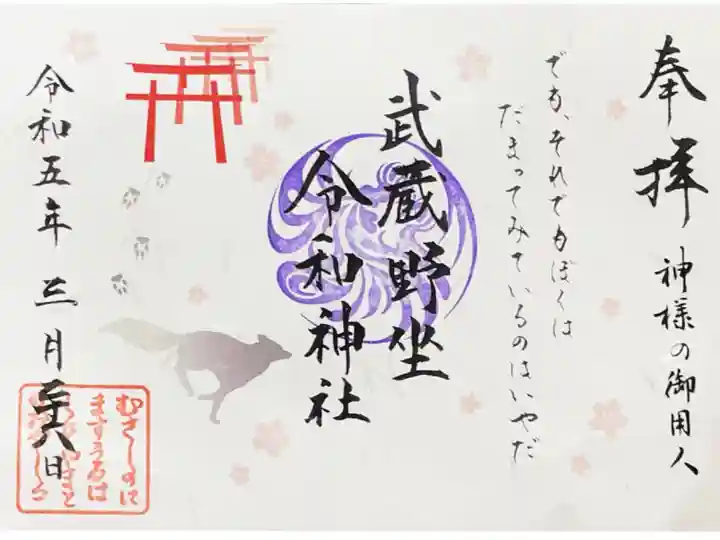 奉拝
神様の御用人
でも、それでもぼくは
だまってみているのはいやだ
武蔵野坐
令和神社
令和五年三月二十六日
むさしのに
ますうるは